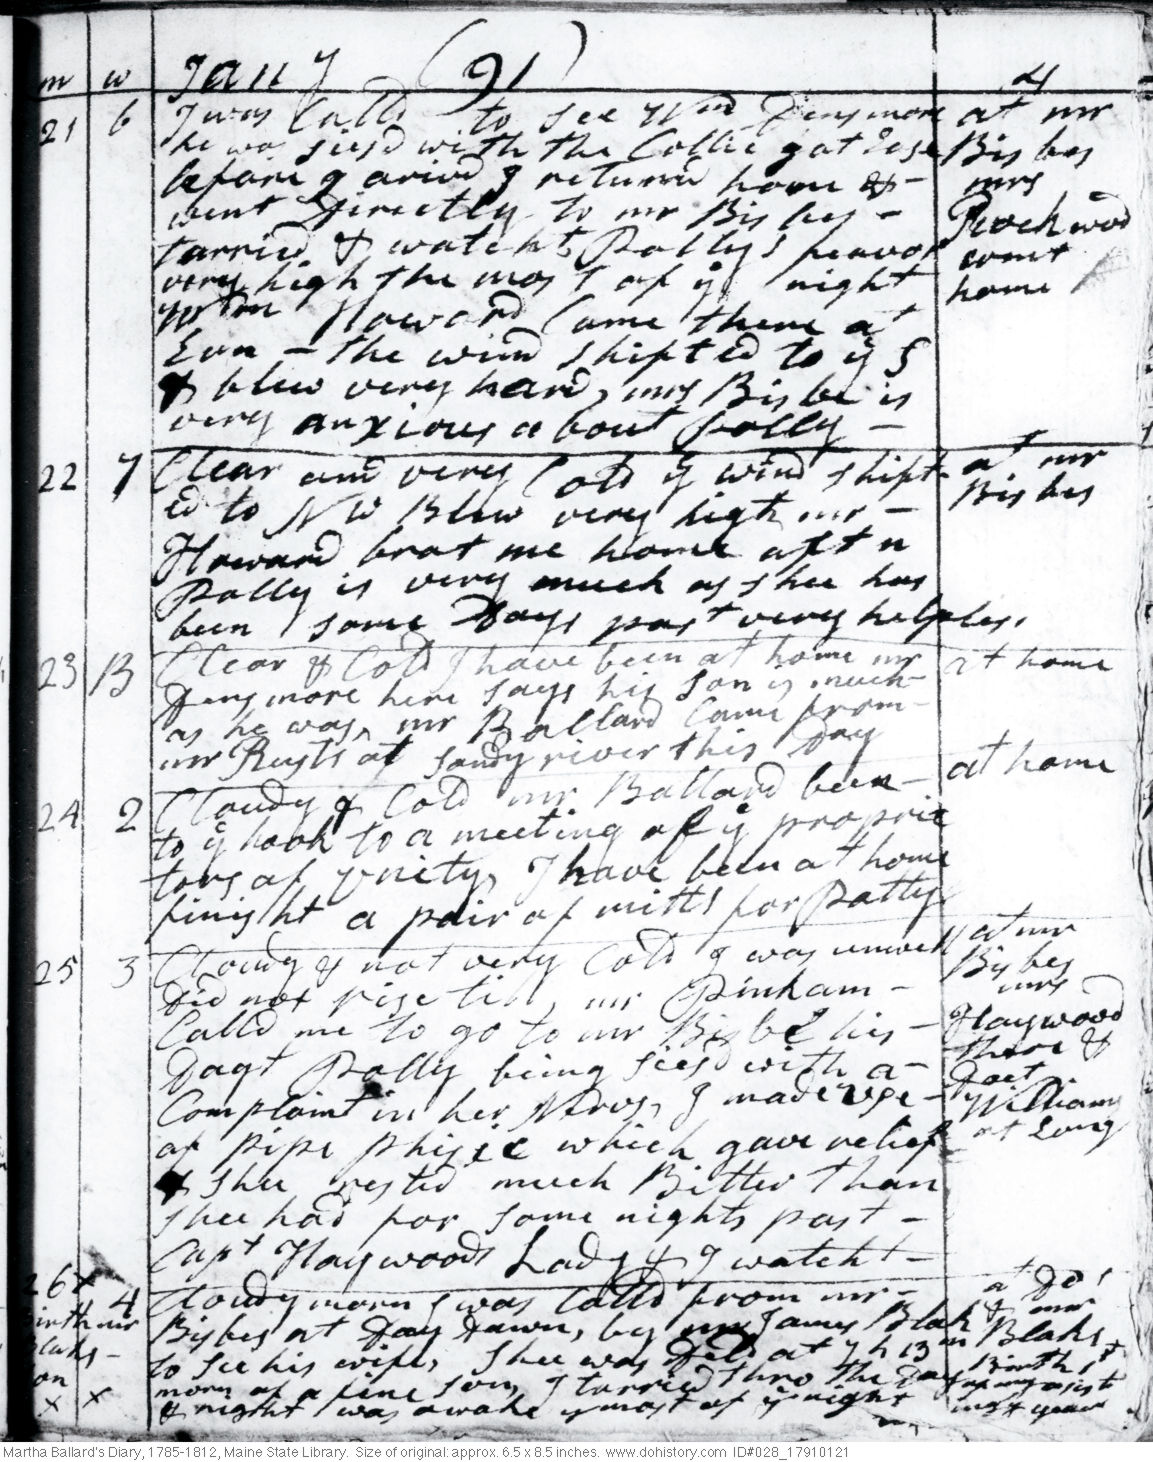 m w Jany (91) 4
21 6 I was Calld to See Wm Densmore
he was siesd with the Collic got Ease
before I arivd I returnd home & -
went Directly to mr Bisbes -
tarried & watcht, Pollys feavor
very high the most of ye night
mr Howard Came there at
Evn - the wind shifted to ye S
& blew very hard, mrs Bisbe is
very anxious about Polly -
at mr
Bisbes
mrs
went
home
22 7 Clear and very Cold ye wind shift
ed to NW Blew very high, mr -
Howard brot me home aftn
Polly is very much as shee has
been some Days past very helples.
at mr
Bisbes
23 B Clear & Cold I have been at home mr
Densmore here says his son is much
as he was, mr Ballard Came from -
mr Rusts at Sandy river this Day
at home
24 2 Cloudy & Cold mr Ballard been -
to ye hook to a meeting of ye proprie
tors of Unity, I have been at home
finisht a pair of mitts for Patty
at home
25 3 Cloudy & not very Cold I was unwell
Did not rise till mr Pinkham -
Calld me to go to mr Bisbe his -
Dagt Polly being siesd with a -
Complaint in her Nervs, I made use -
of pipe phisic which gave relief
& shee rested much Bitter than
shee had for some nights past -
Capt Haywoods Lady & I watcht -
at mr
Bisbes
mrs
Haywood
there &
Doct
Williams
at Evng
26 x 4 Cloudy morn I was Calld from mr -
Bisbes at Day Dawn, by mr James Blak
to see his wife, Shee was Deld at 7 h 13 m
morn of a fine son, I tarried thro the Day
& night was awake ye most of ye night
Birth mr
Blaks -
son
x x
at Do
& mr
Blaks
Birth 1st
Martha Ballard's Diary, 1785-1812, Maine State Library. Size of original: approx. 6.5 x 8.5 inches. www.dohistory.com ID#028_17910121